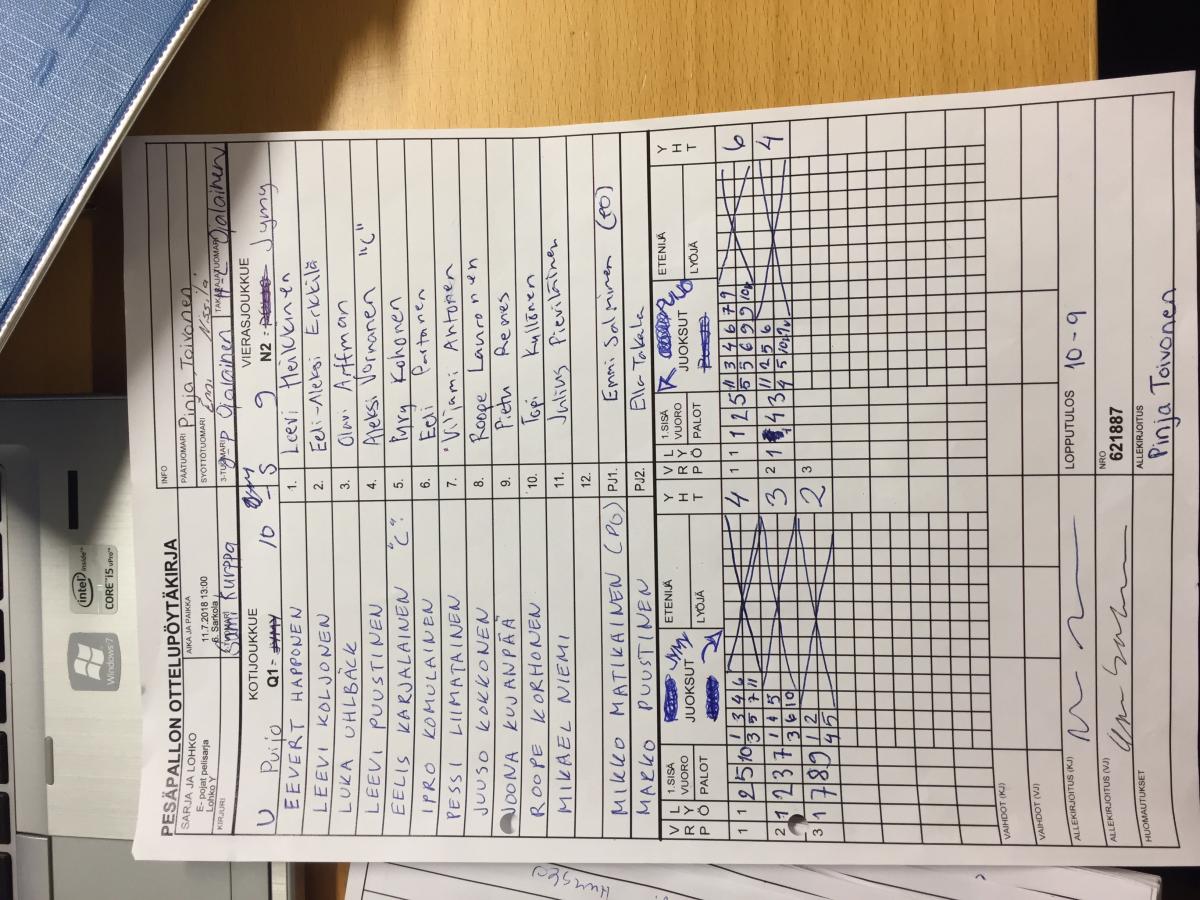 PESÄPALLON OTTELUPÖYTÄKIRJA
SARJA JA LOHKO
E- pojat pelisarja
Lohko Y
AIKA JA PAIKKA
11.7.2018 13:00
6. Sarkola
INFO
PÄÄTUOMARI Pinja Toivonen
SYÖTTÖTUOMARI
KIRJURI
Kurppa
3-TUOMARI
Ojalainen
TAKARAJATUOMARI
Ojalainen
KOTIJOUKKUE
Q1 =
U Puijo
10 - 9
VIERASJOUKKUE
N2 =
Jymy
EEVERT HAPPONEN 1. Leevi Heikkinen
LEEVI KOLJONEN 2. Eeli-Aleksi Erkkilä
LUKA UHLBÄCK 3. Olavi Affman
LEEVI PUUSTINEN 4. Aleksi Jormanen "C"
EELIS KARJALAINEN "C" 5. Pyry Kohonen
IPRO KOMULAINEN 6. Eeli Partanen
PESSI LIIMATAINEN 7. Viljami Ahtonen
JUUSO KOKKONEN 8. Roope Lauronen
JOONA KUJANPÄÄ 9. Pietu Reenes
ROOPE KORHONEN 10. Topi Kyllönen
MIKAEL NIEMI 11. Julius Pieviläinen
12.
MIKKO MATIKAINEN (PG) PJ1. Emmi Salminen
MARKO PUUSTINEN PJ2. Ella Takala
V R P
L Y Ö
1.SISÄ VUORO
PALOT
JUOKSUT
ETENIJÄ
LYÖJÄ
Y H T
V R P
L Y Ö
1.SISÄ VUORO
PALOT
JUOKSUT
ETENIJÄ
LYÖJÄ
Y H T
1 1 2 5 10 1 3 4 6 4
3 5 7 11
1 1 1 2 5 11 3 4 6 7 9 6
2 1 2 3 7 1 4 5 3
3 6 10
2 1 4 3 11 2 5 6 4
3 1 7 8 9 1 2 2
4 5
3
VAIHDOT (KJ)
VAIHDOT (VJ)
ALLEKIRJOITUS (KJ)
LOPPUTULOS 10 - 9
ALLEKIRJOITUS (VJ)
NRO
621887
HUOMAUTUKSET
ALLEKIRJOITUS
Pinja Toivonen
intel inside
CORE i5 vPro
Windows 7